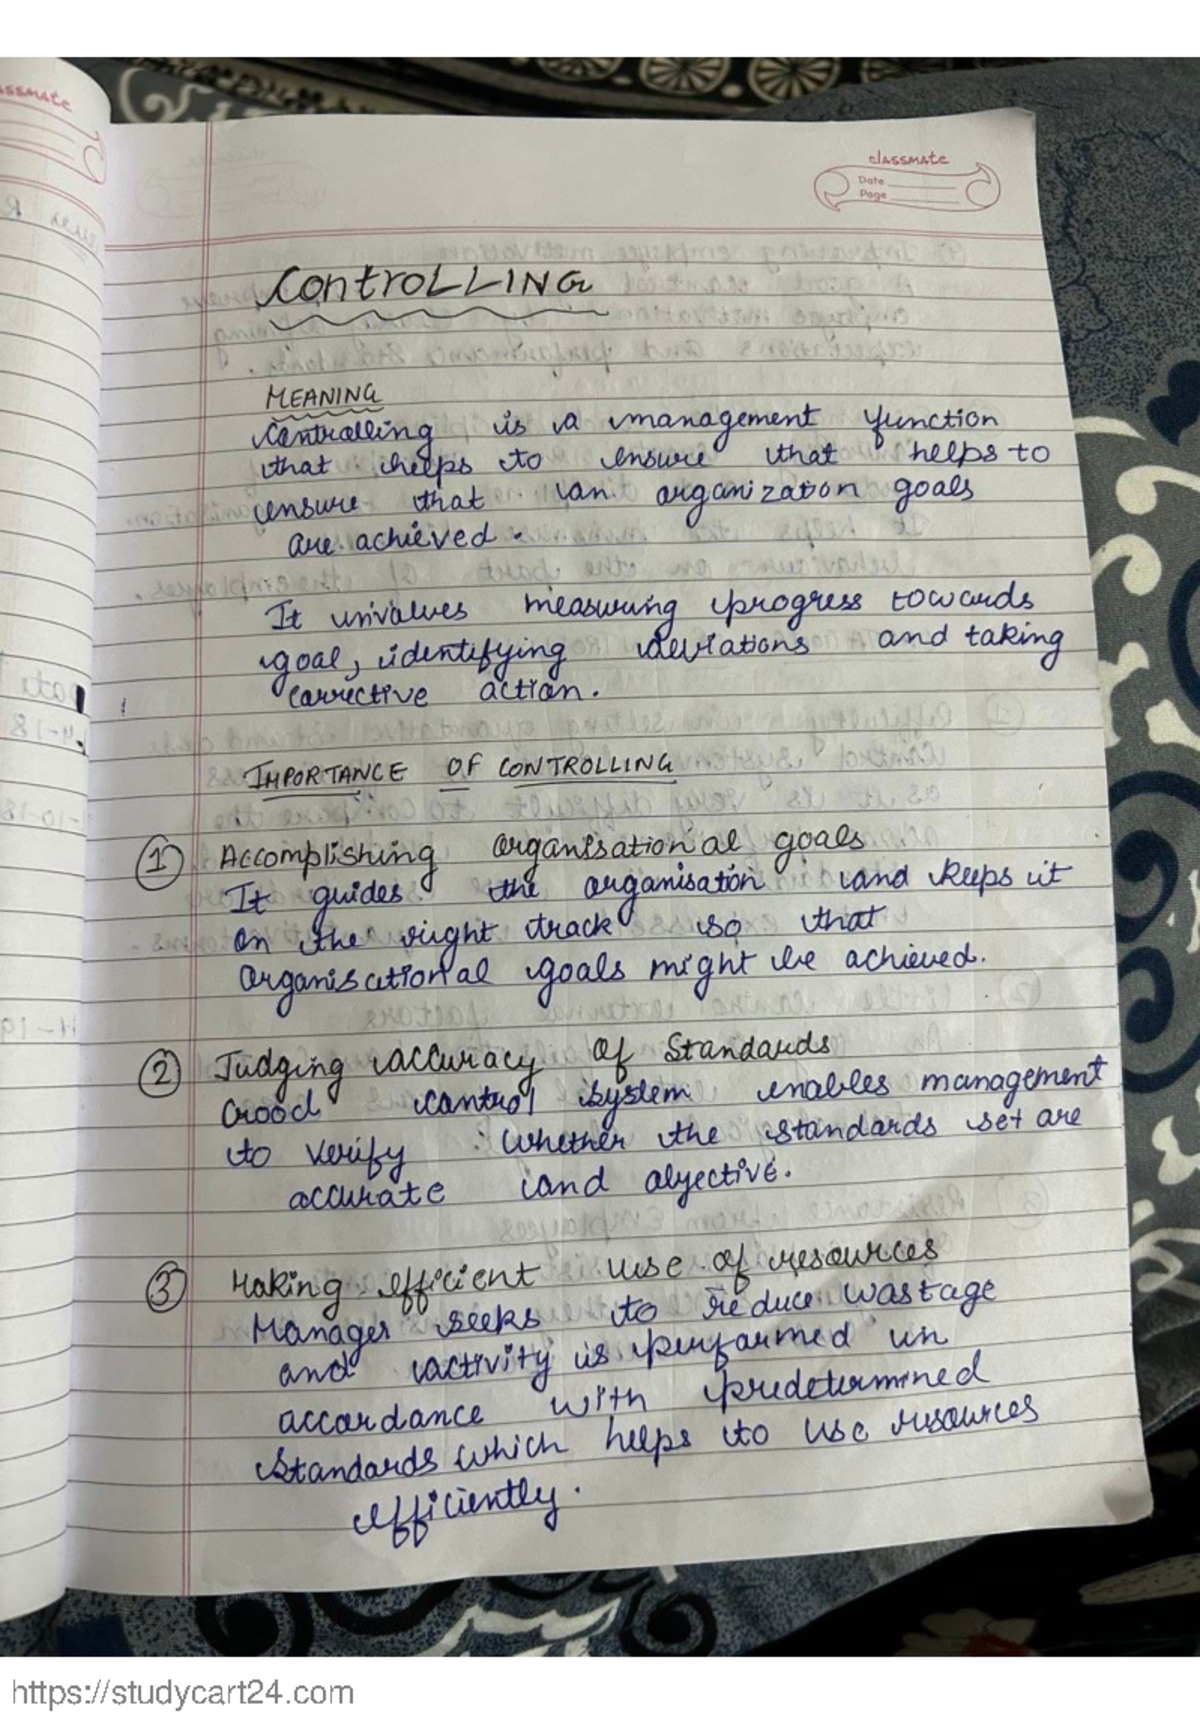 classmate
Date
Page
CONTROLLING
MEANING
Controlling is a management function
that helps to ensure that helps to
ensure that an organization goals
are achieved.
It involves measuring progress towards
goal, identifying deviations and taking
corrective action.
IMPORTANCE OF CONTROLLING
① Accomplishing organisational goals
It guides the organisation and keeps it
on the right track so that
organisational goals might be achieved.
② Judging accuracy of Standards
Good control system enables management
to verify whether the standards set are
accurate and objective.
③ Making efficient use of resources
Manager seeks to reduce wastage
and activity is performed in
accordance with predetermined
standards which helps to use resources
efficiently.
https://studycart24.com